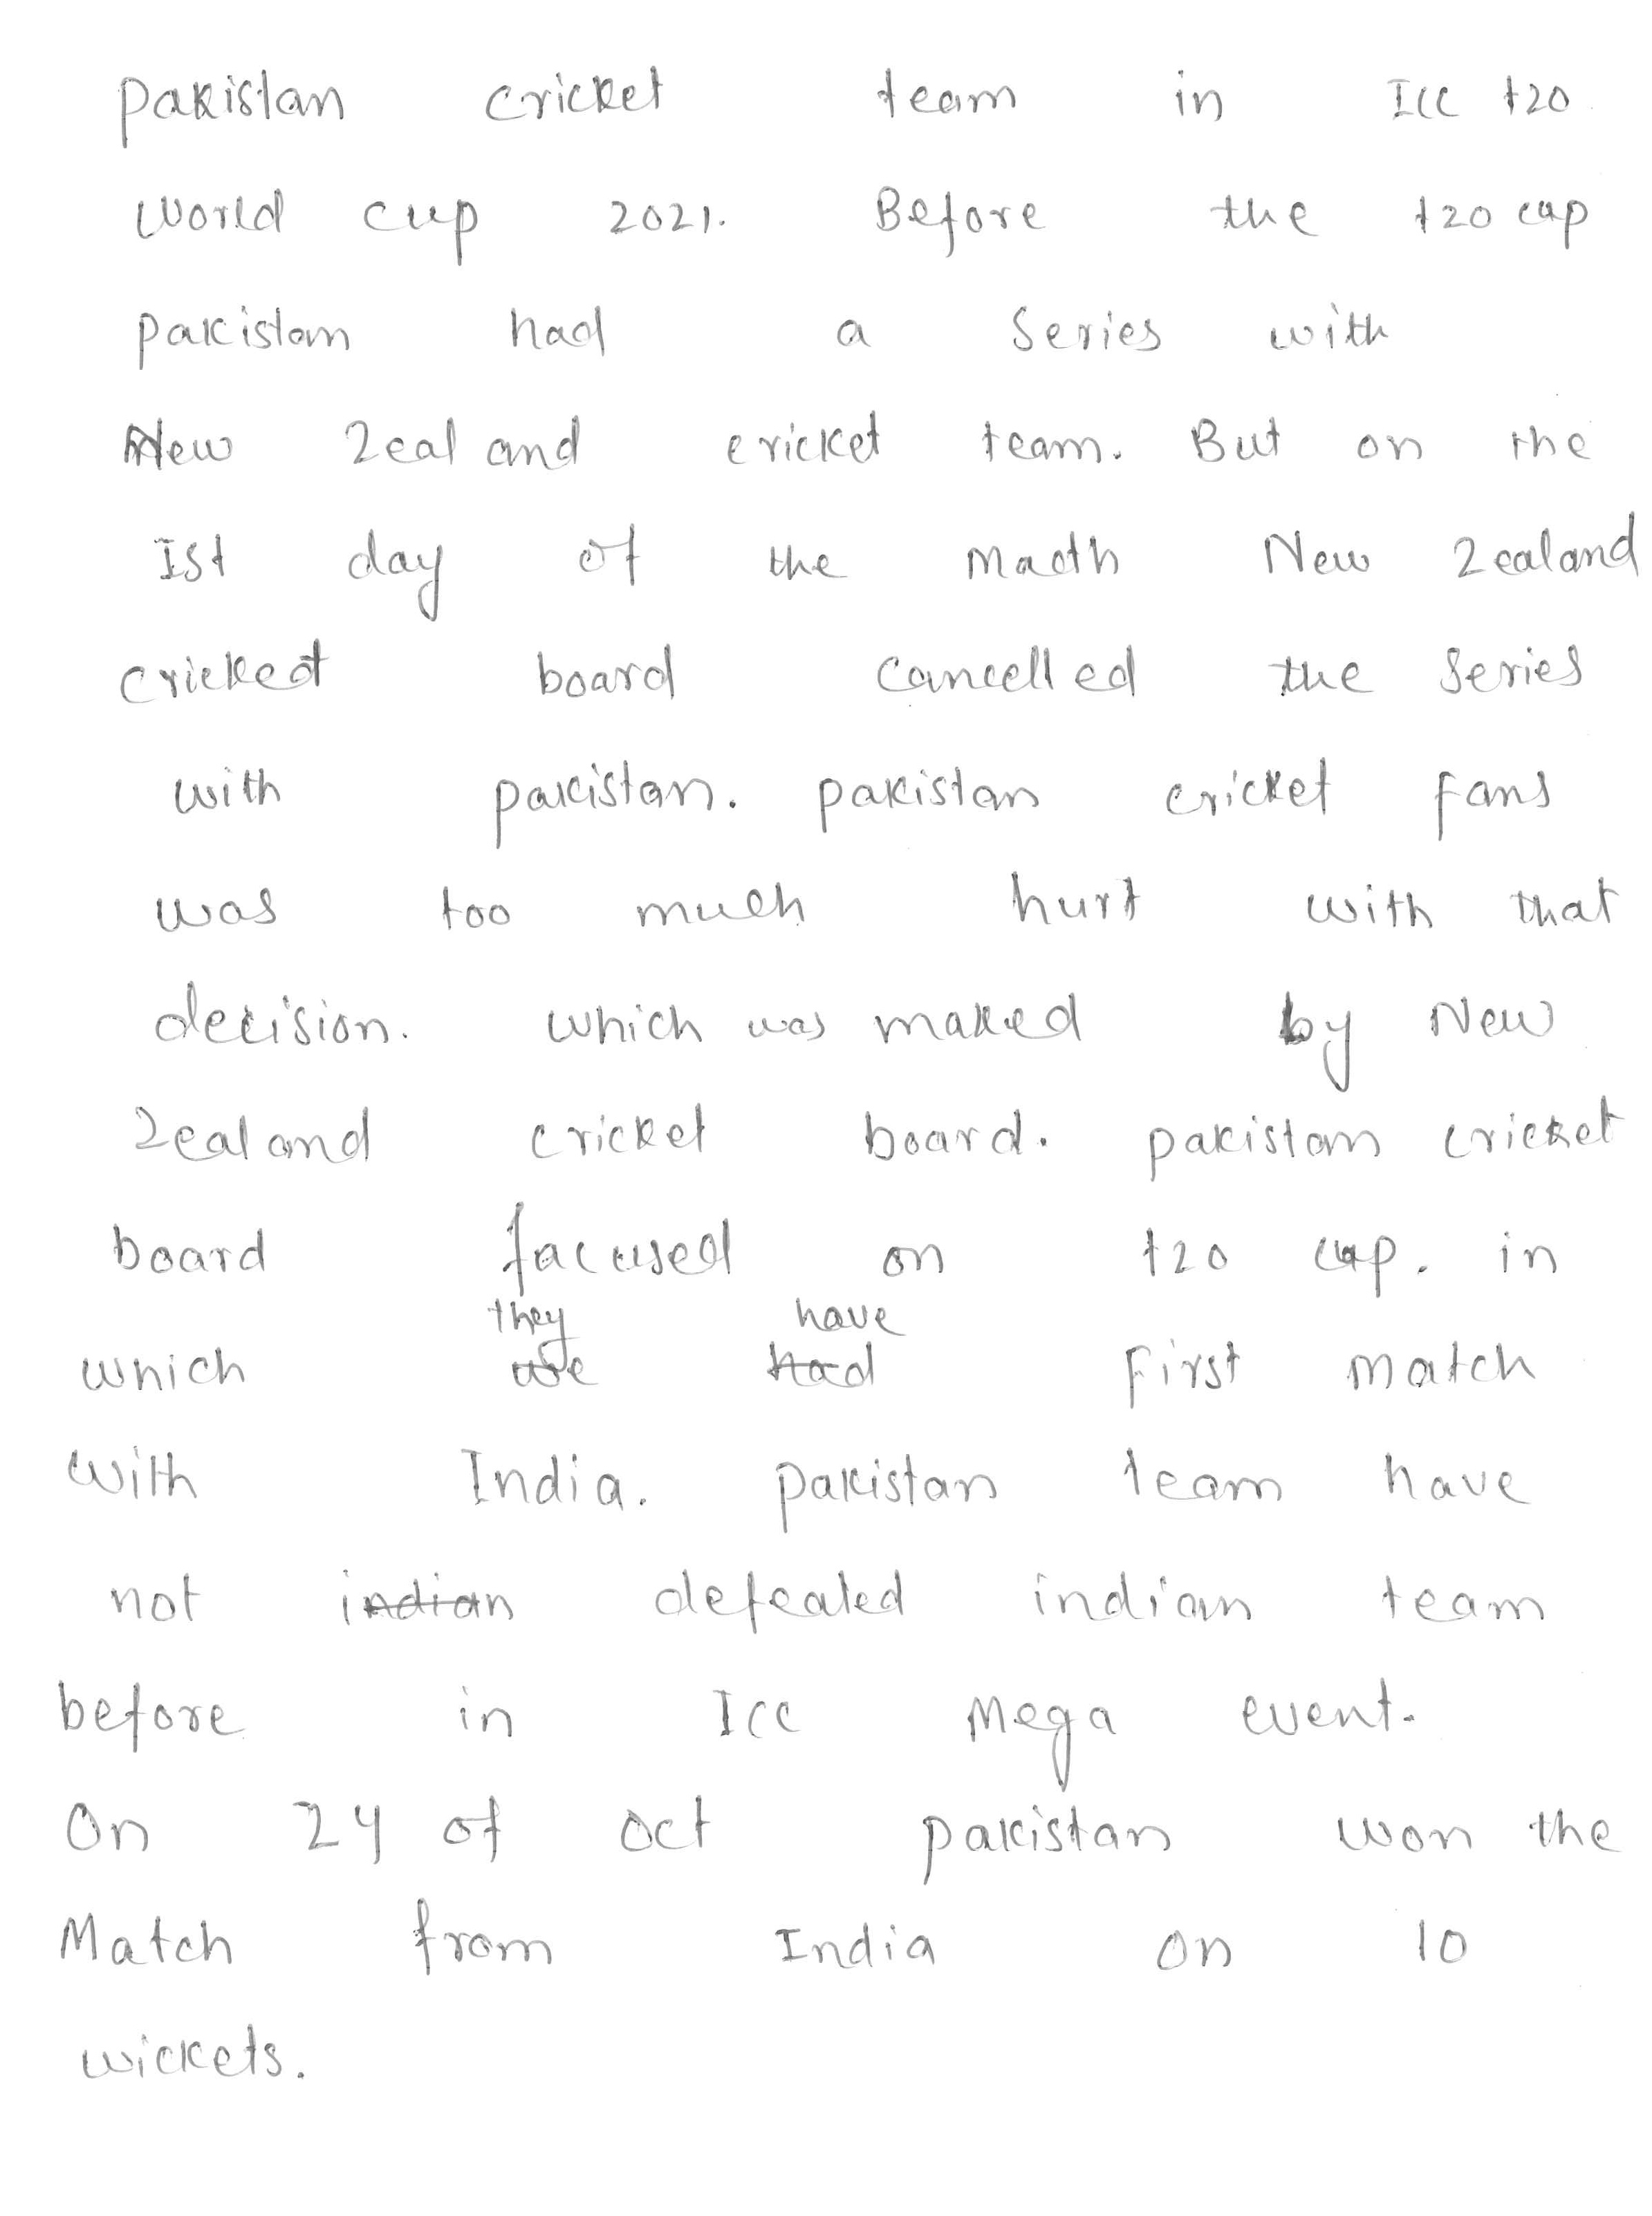 Pakistan cricket team in ICC t20
World cup 2021. Before the t20 cup
pakistan had a Series with
New Zealand cricket team. But on the
Ist day of the macth New Zealand
cricket board cancelled the series
with pakistan. pakistan cricket fans
was too much hurt with that
decision. which was maked by New
Zealand cricket board. pakistan cricket
board facused on t20 cup. in
they have
which we had first match
with India. pakistan team have
not indian defeated indian team
before in ICC Mega event.
On 24 of Oct pakistan won the
Match from India on 10
wickets.